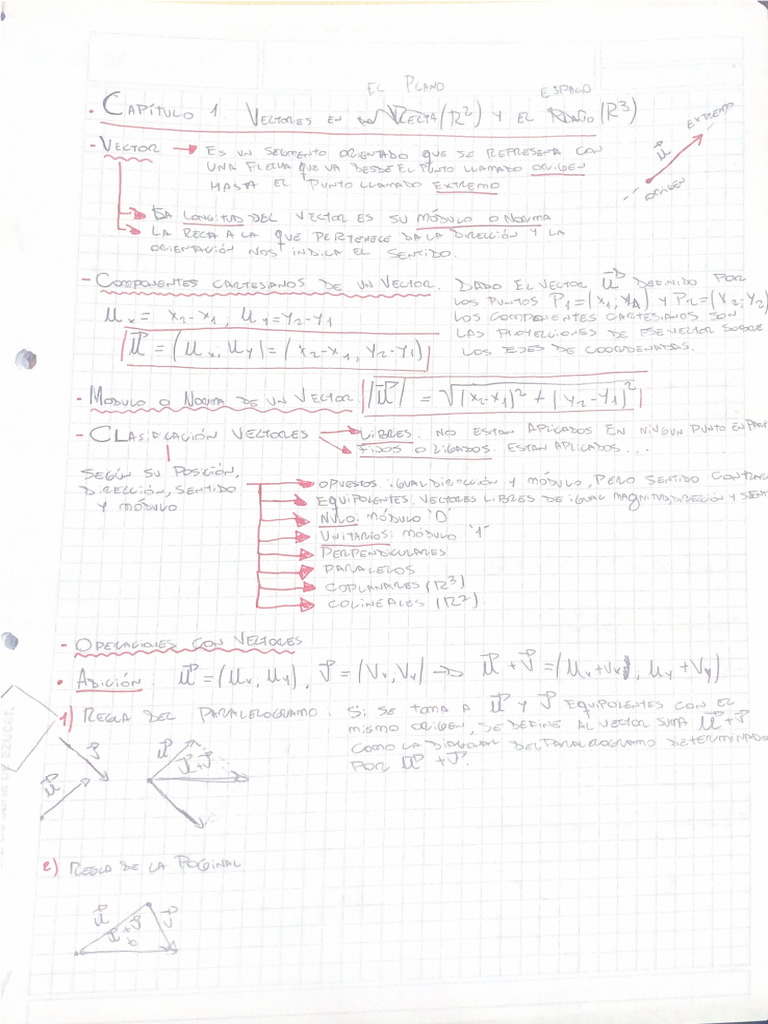 EL PLANO ESPACIO
• CAPÍTULO 1. VECTORES EN (R²) Y EL (R³)
- VECTOR → ES UN SEGMENTO ORIENTADO QUE SE REPRESENTA CON
UNA FLECHA QUE VA DESDE EL PUNTO LLAMADO ORIGEN
HASTA EL PUNTO LLAMADO EXTREMO
u⃗ EXTREMO
ORIGEN
→ LA LONGITUD DEL VECTOR ES SU MÓDULO O NORMA
→ LA RECTA A LA QUE PERTENECE DA LA DIRECCIÓN Y LA
ORIENTACIÓN NOS INDICA EL SENTIDO.
- COMPONENTES CARTESIANOS DE UN VECTOR. DADO EL VECTOR u⃗ DEFINIDO POR
LOS PUNTOS P₁=(x₁, y₁) Y P₂=(x₂, y₂)
uₓ = x₂-x₁ ; u_y = y₂-y₁ LOS COMPONENTES CARTESIANOS SON
LAS PROYECCIONES DE ESE VECTOR SOBRE
u⃗ = (uₓ, u_y) = (x₂-x₁, y₂-y₁) LOS EJES DE COORDENADAS.
- MÓDULO O NORMA DE UN VECTOR |u⃗| = √(x₂-x₁)² + (y₂-y₁)²
- CLASIFICACIÓN VECTORES → LIBRES. NO ESTAN APLICADOS EN NINGUN PUNTO EN
→ FIJOS O LIGADOS. ESTAN APLICADOS...
SEGÚN SU POSICIÓN,
DIRECCIÓN, SENTIDO
Y MÓDULO
→ OPUESTOS: IGUAL DIRECCIÓN Y MÓDULO, PERO SENTIDO
→ EQUIPOLENTES. VECTORES LIBRES DE IGUAL MAGNITUD, DIRECCIÓN Y
→ NULO: MÓDULO '0'
→ UNITARIOS: MÓDULO '1'
→ PERPENDICULARES
→ PARALELOS
→ COPLANARES (R³)
→ COLINEALES (R²)
- OPERACIONES CON VECTORES
• ADICIÓN: u⃗ = (uₓ, u_y), v⃗ = (vₓ, vₓ) → u⃗ + v⃗ = (uₓ+vₓ), u_y + v_y)
1) REGLA DEL PARALELOGRAMO. SI SE TOMA A u⃗ Y v⃗ EQUIPOLENTES CON EL
MISMO ORIGEN, SE DEFINE AL VECTOR SUMA u⃗+v⃗
COMO LA DIAGONAL DEL PARALELOGRAMO DETERMINADO
POR u⃗ + v⃗.
v⃗ u⃗ u⃗+v⃗
u⃗
2) REGLA DE LA POLIGINAL
u⃗ v⃗
u⃗+v⃗